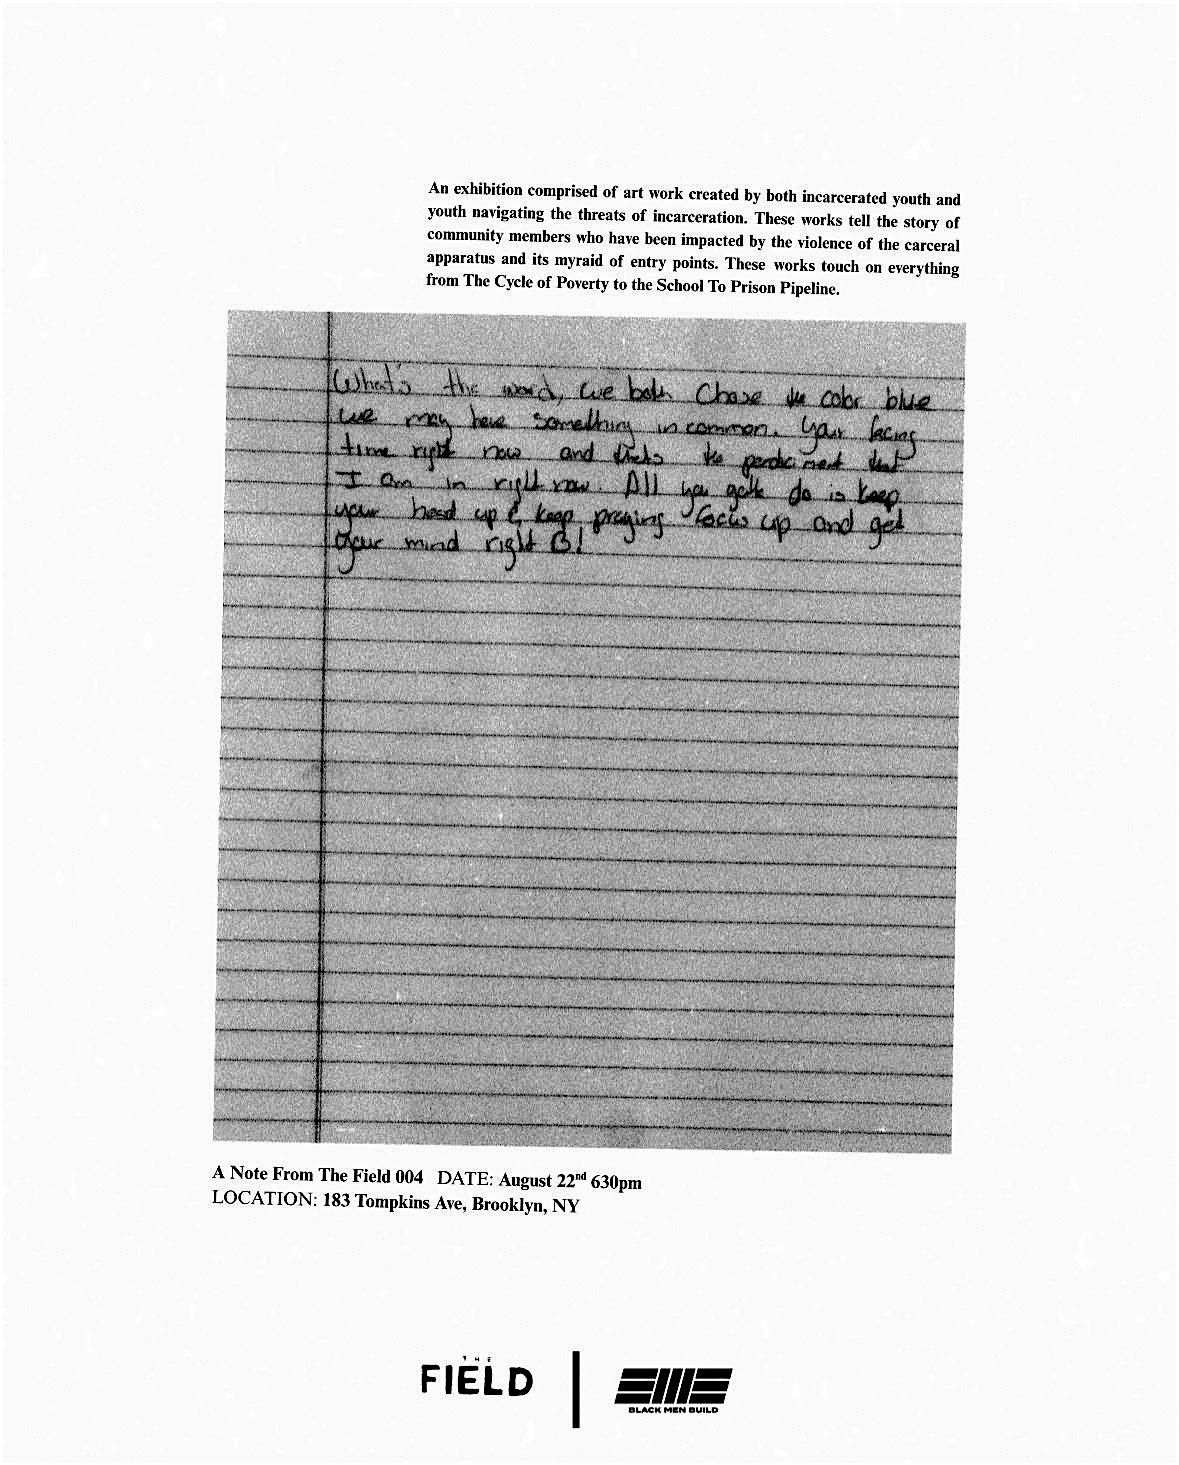 An exhibition comprised of art work created by both incarcerated youth and
youth navigating the threats of incarceration. These works tell the story of
community members who have been impacted by the violence of the carceral
apparatus and its myraid of entry points. These works touch on everything
from The Cycle of Poverty to the School To Prison Pipeline.
What's the word, we both Chose the color blue
we may have something in common. Your facing
time right now and thats the perdiciment that
I am in right now. All you gotta do is keep
your head up & keep praying focus up and get
your mind right B!
A Note From The Field 004 DATE: August 22nd 630pm
LOCATION: 183 Tompkins Ave, Brooklyn, NY
THE
FIELD
BLACK MEN BUILD